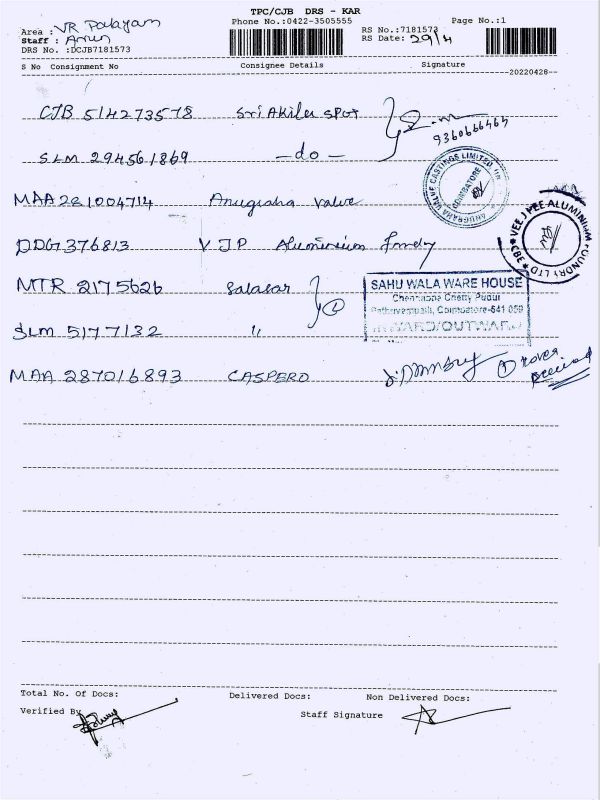 TPC/CJB DRS - KAR
Area : VR Palayam
Phone No.:0422-3505555
Page No.:1
Staff : Arun
RS No.:7181573
DRS No. :DCJB7181573
RS Date: 29/4
S No Consignment No Consignee Details Signature
20220428
CJB 514273578 Sri Akila spot
9360666464
SLM 294561869 - do -
MAA 281004714 Anugraha Valve
ANUGRAHA VALVE CASTINGS LIMITED
COIMBATORE
DDG 376813 V J P Aluminium
VEE JPEE ALUMINIUM FOUNDRY LTD
CBE
MTR 2175626 Salasar
SLM 5177132 "
SAHU WALA WARE HOUSE
Chennappa Chetty Pudur
Coimbatore-641 059
INWARD/OUTWARD
MAA 287016893 CASPERO
① cover
received
Total No. Of Docs: Delivered Docs: Non Delivered Docs:
Verified By
Staff Signature